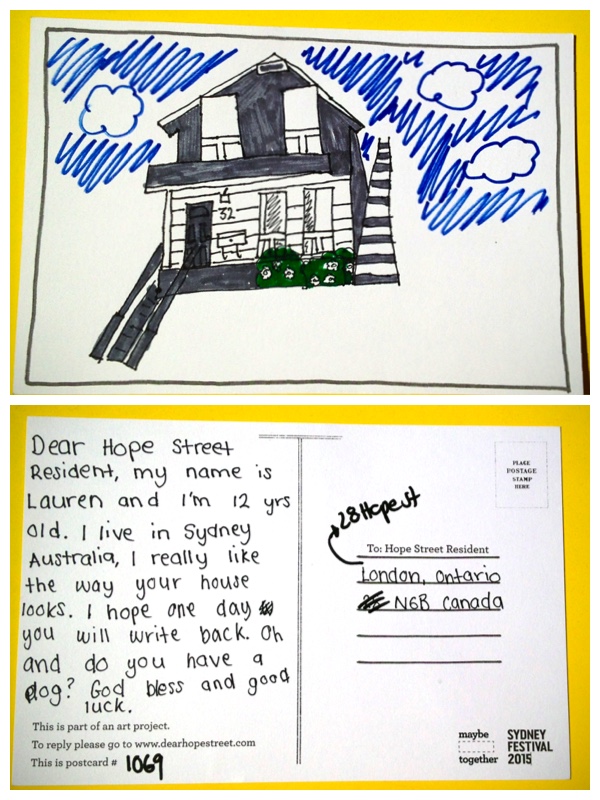 32
Dear Hope Street
Resident, my name is
Lauren and I'm 12 yrs
old. I live in Sydney
Australia, I really like
the way your house
looks. I hope one day
you will write back. Oh
and do you have a
dog? God bless and good
luck.
This is part of an art project.
To reply please go to www.dearhopestreet.com
This is postcard # 1069
PLACE
POSTAGE
STAMP
HERE
28 Hope st
To: Hope Street Resident
London, Ontario
N6B Canada
maybe
together
SYDNEY
FESTIVAL
2015